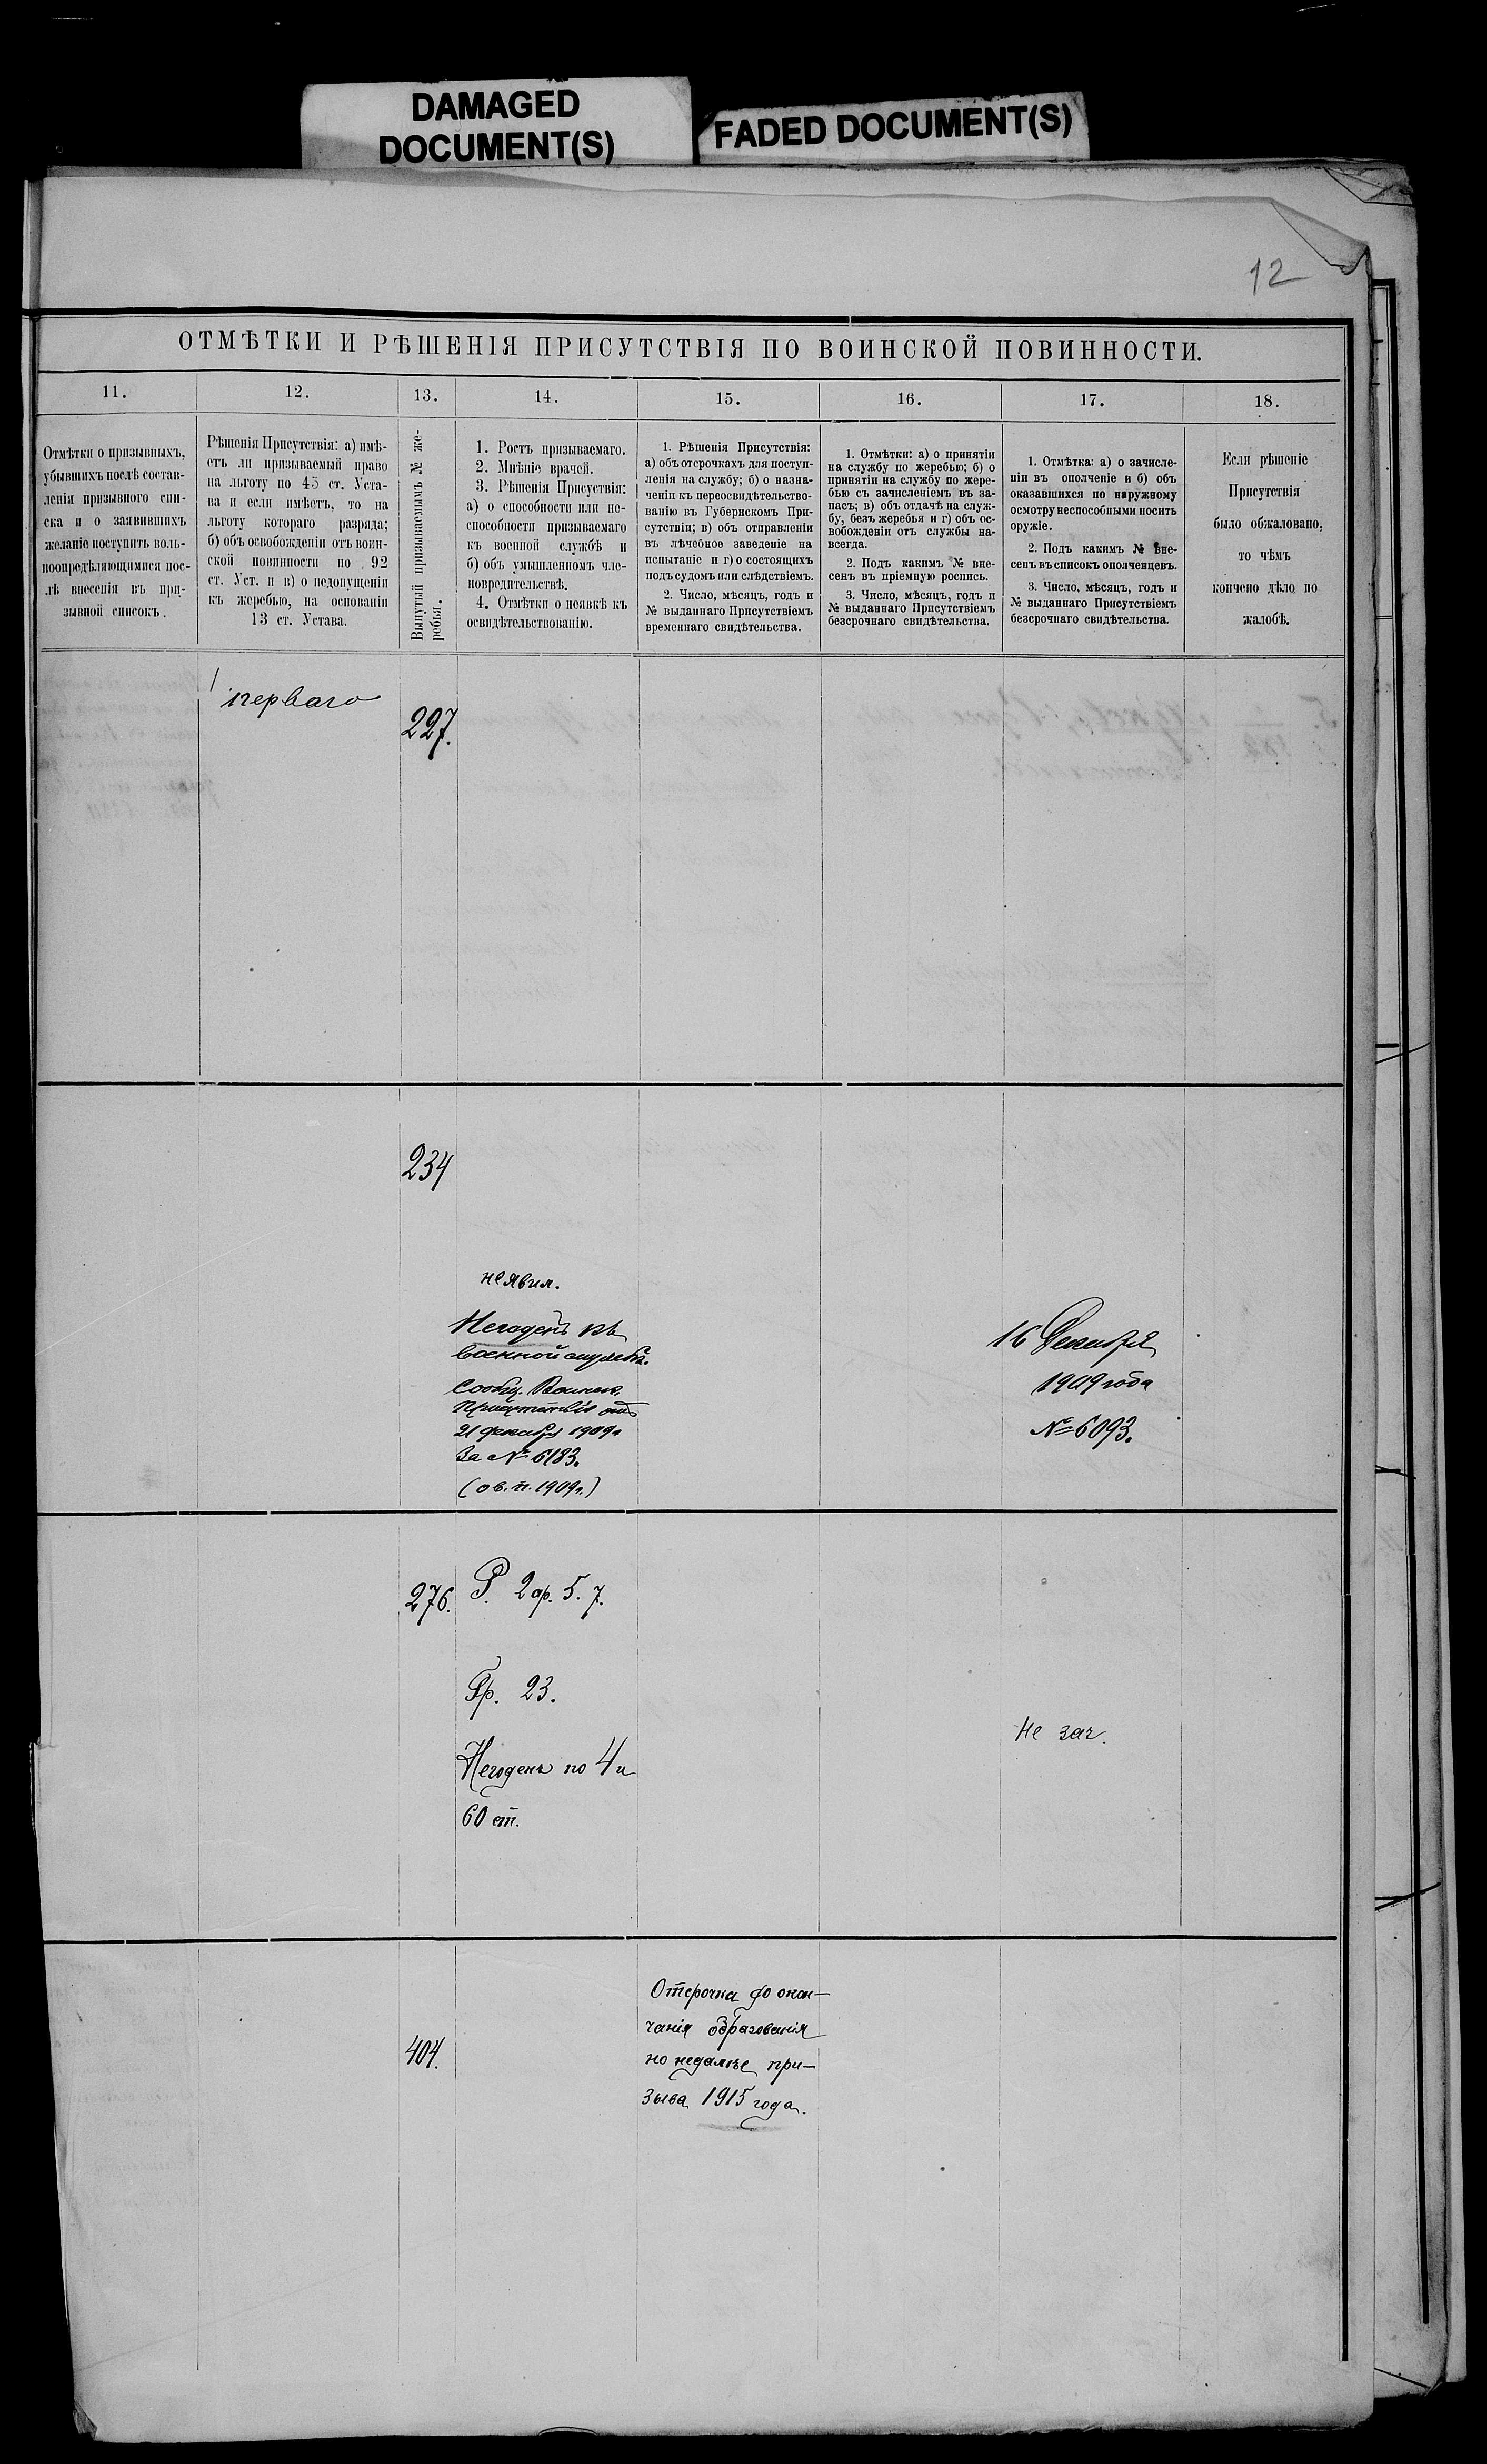 DAMAGED
DOCUMENT(S)
FADED DOCUMENT(S)
12
ОТМѢТКИ И РѢШЕНІЯ ПРИСУТСТВІЯ ПО ВОИНСКОЙ ПОВИННОСТИ.
11.
12.
13.
14.
15.
16.
17.
18.
Отмѣтки о призывныхъ,
убывшихъ послѣ состав-
ленія призывного спи-
ска и о заявившихъ
желаніе поступить воль-
ноопредѣляющимися пос-
лѣ внесенія въ при-
зывной списокъ.
Рѣшенія Присутствія: а) имѣ-
етъ ли призываемый право
на льготу по 45 ст. Уста-
ва и если имѣетъ, то на
льготу котораго разряда;
б) объ освобожденіи отъ воин-
ской повинности по 92
ст. Уст. и в) о недопущеніи
къ жеребью, на основаніи
13 ст. Устава.
Вынутый призываемымъ № же-
ребья.
1. Ростъ призываемаго.
2. Мнѣніе врачей.
3. Рѣшенія Присуствія:
а) о способности или не-
способности призываемаго
къ военной службѣ и
б) объ умышленномъ чле-
новредительствѣ.
4. Отмѣтки о неявкѣ къ
освидѣтельствованію.
1. Рѣшенія Присутствія:
а) объ отсрочкахъ для поступ-
ленія на службу; б) о назна-
ченіи къ переосвидѣтельство-
ванію въ Губернскомъ При-
сутствіи; в) объ отправленіи
въ лѣчебное заведеніе на
испытаніе и г) о состоящихъ
подъ судомъ или слѣдствіемъ.
2. Число, мѣсяцъ, годъ и
№ выданнаго Присутствіемъ
временнаго свидѣтельства.
1. Отмѣтки: а) о принятіи
на службу по жеребью; б) о
принятіи на службу по жере-
бью съ зачисленіемъ въ за-
пасъ; в) объ отдачѣ на служ-
бу, безъ жеребья и г) объ ос-
вобожденіи отъ службы на-
всегда.
2. Подъ какимъ № вне-
сенъ въ пріемную роспись.
3. Число, мѣсяцъ, годъ и
№ выданнаго Присутствіемъ
безсрочнаго свидѣтельства.
1. Отмѣтка: а) о зачисле-
ніи въ ополченіе и б) объ
оказавшихся по наружному
осмотру неспособными носить
оружіе.
2. Подъ какимъ № вне-
сенъ въ списокъ ополченцевъ.
3. Число, мѣсяцъ, годъ и
№ выданнаго Присутствіемъ
безсрочнаго свидѣтельства.
Если рѣшеніе
Присутствія
было обжаловано,
то чѣмъ
кончено дѣло по
жалобѣ.
перваго
227.
234
неявил.
Негоденъ къ
военной службѣ.
Сообщ. Воинск.
Присутствія отъ
21 декабря 1909г
за № 6183.
(ов. п. 1909г.)
16 Декабря
1909 года
№ 6093.
276.
Р. 2 ар. 5. 7.
Гр. 23.
Негоденъ по 4 и
60 ст.
Не зач.
404.
Отсрочка до окон-
чанія образованія
но недалѣе при-
зыва 1915 года.